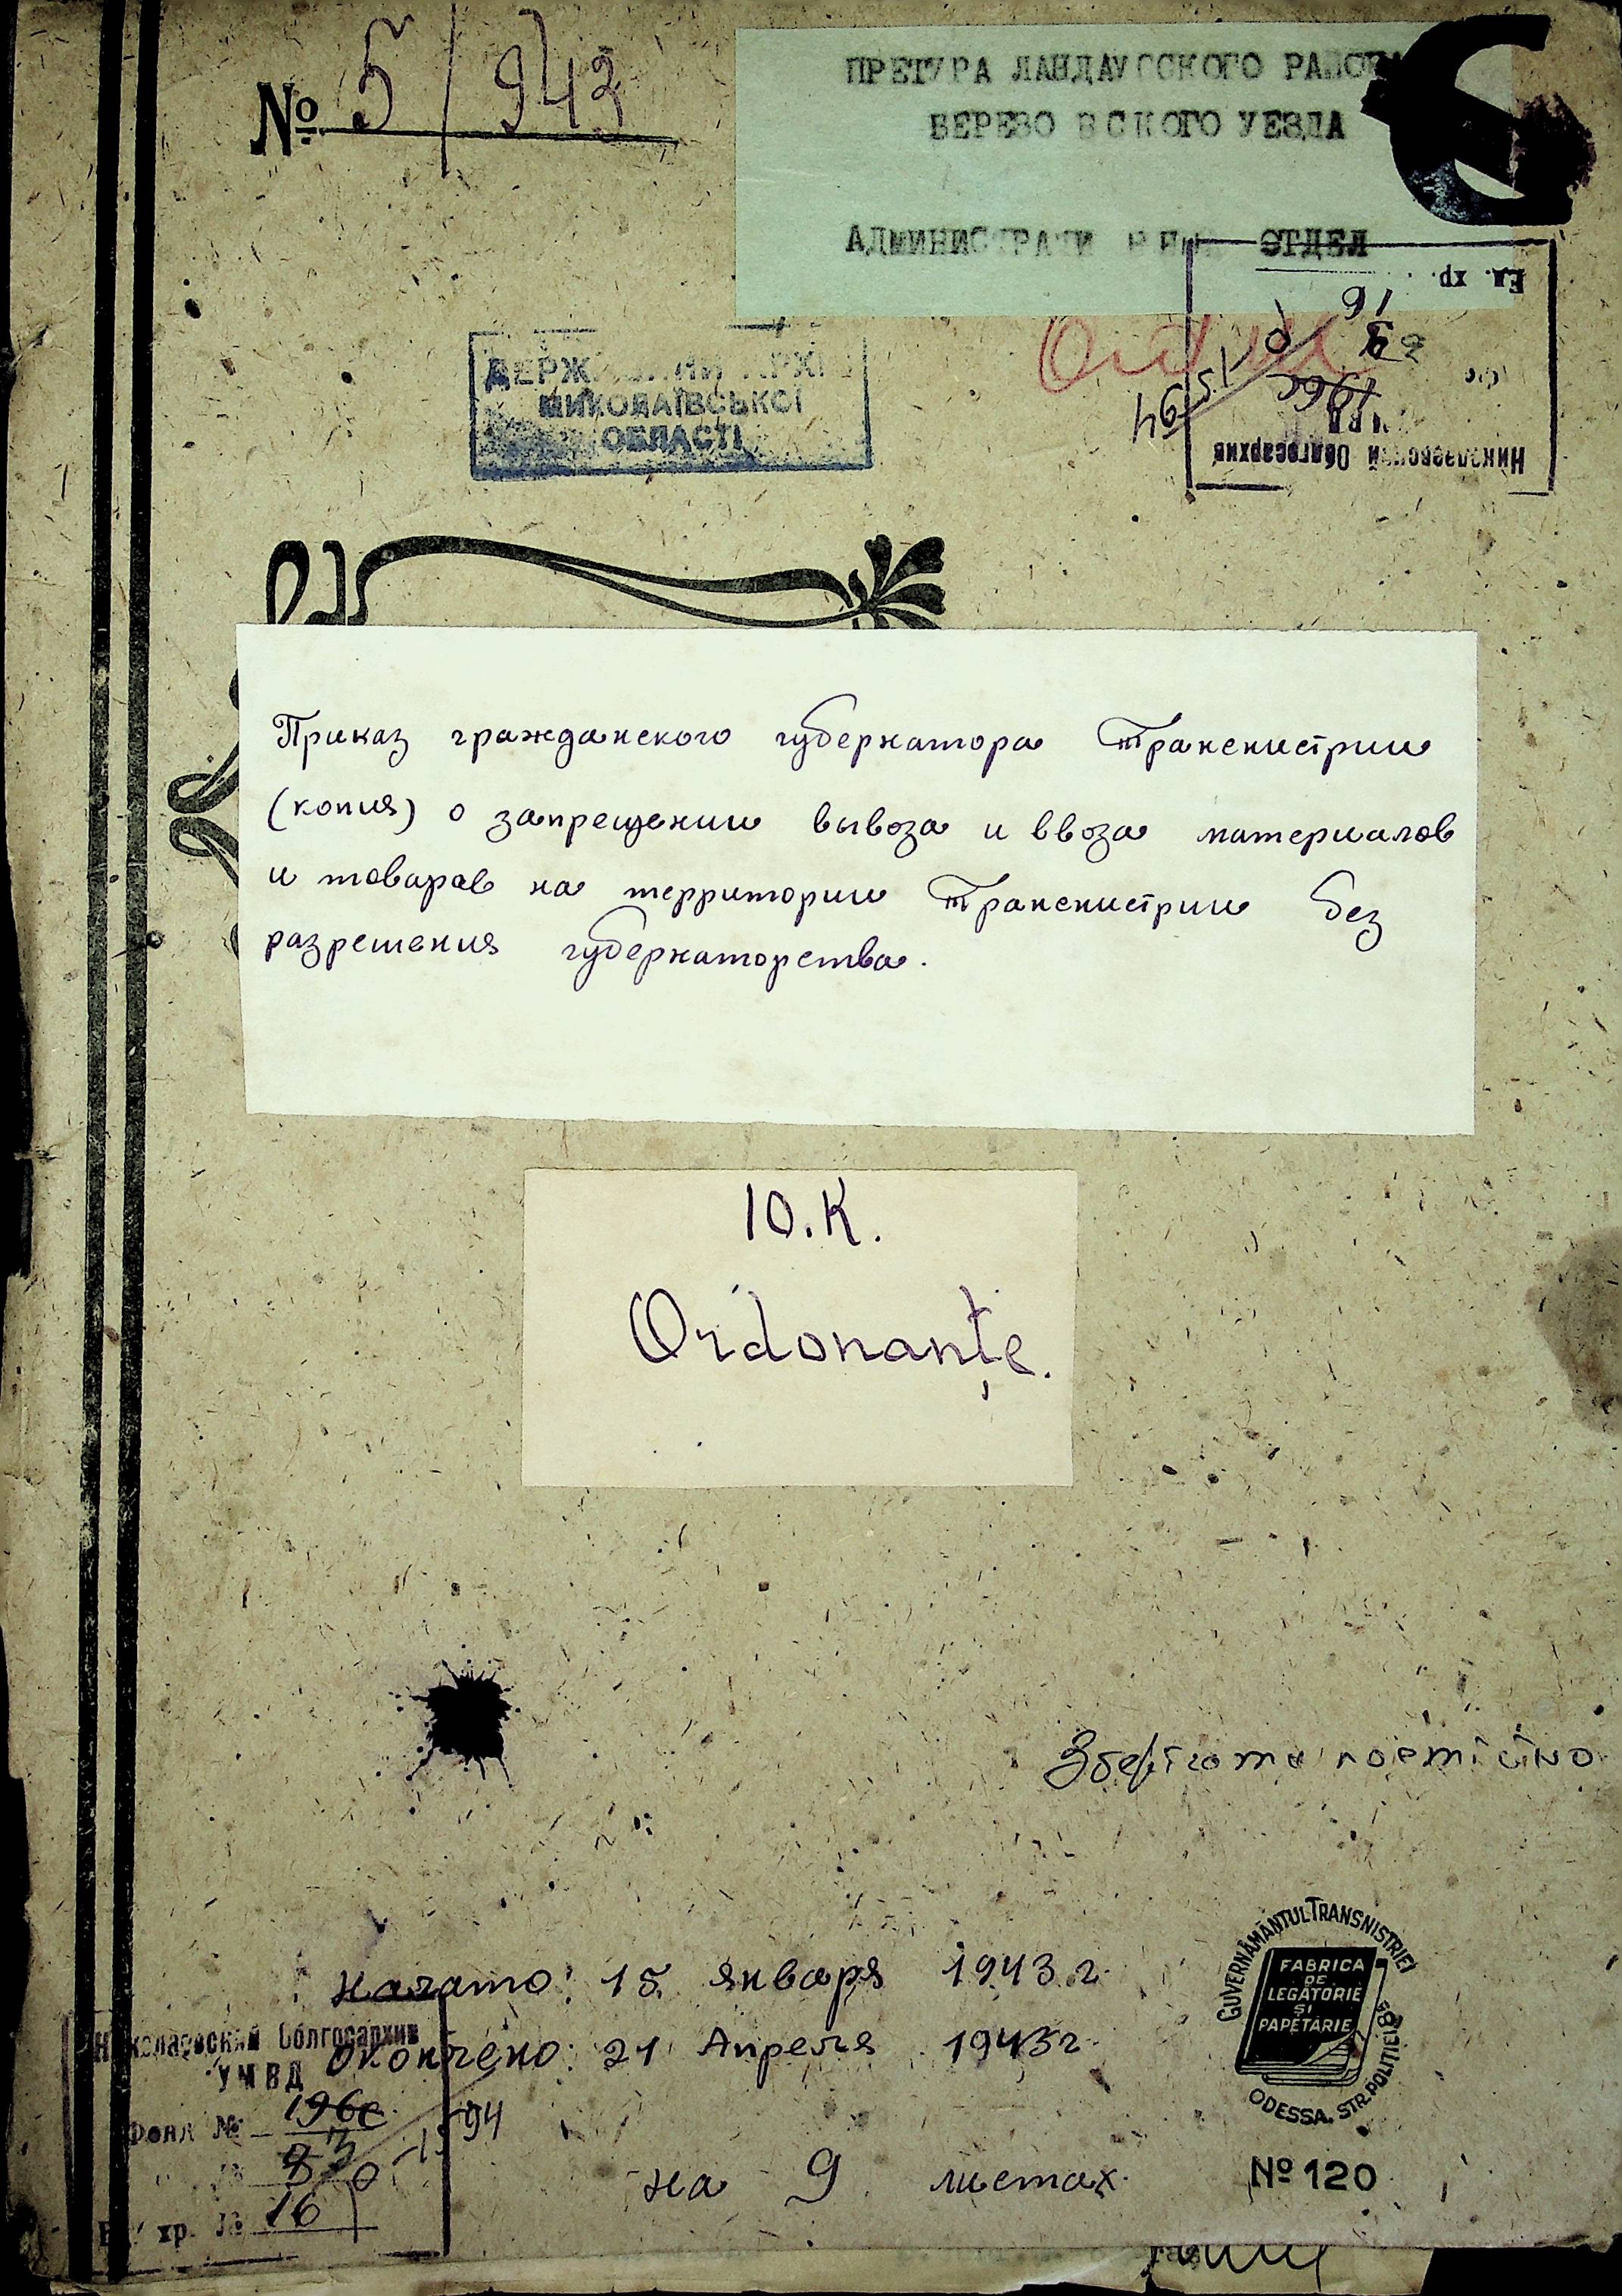 № 5/943
ПРЕТУРА ЛАНДАУССКОГО РАЙОНА
БЕРЕЗОВСКОГО УЕЗДА
ОТДЕЛ
Ед. хр. 16
196с
Р 1594
Николаевский Облгосархив
ДЕРЖАВНИЙ АРХІВ
МИКОЛАЇВСЬКОЇ
ОБЛАСТІ
Приказ гражданского губернатора Транснистрии
(копия) о запрещении вывоза и ввоза материалов
и товаров на территории Транснистрии без
разрешения губернаторства.
10.К.
Ordonanțe.
Зберігати постійно
Начато: 15 января 1943 г.
Окончено: 21 Апреля 1943 г.
на 9 листах.
Николаевский Облгосархив
УМВД
Фонд № 196с
1594
Ед. хр. № 16
GUVERNĂMÂNTUL TRANSNISTRIEI
FABRICA
DE
LEGĂTORIE
ȘI
PAPETĂRIE
ODESSA. STR. POLITIEI 18
№ 120